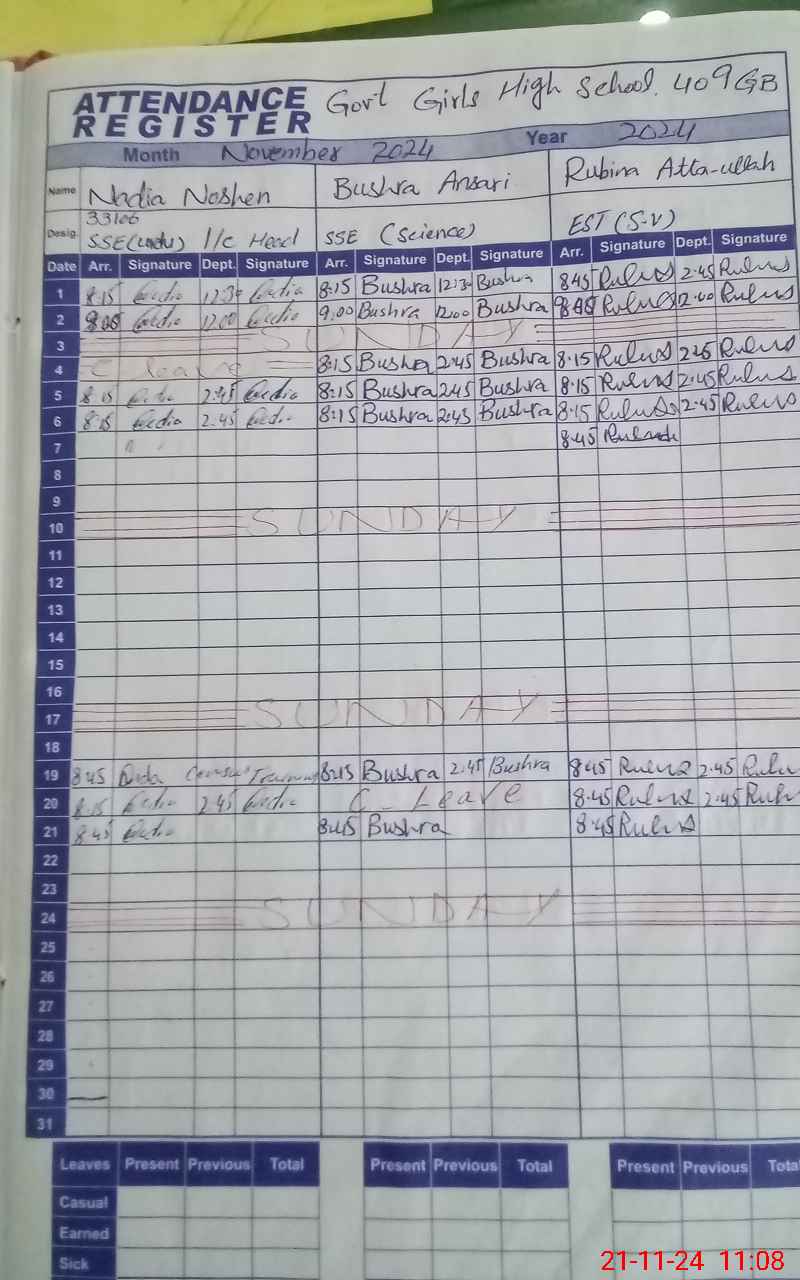 ATTENDANCE REGISTER Govt Girls High School. 409 GB
Month November 2024 Year 2024
Name Nadia Noshen Bushra Ansari Rubina Atta-ullah
33106
Desig. SSE(Urdu) I/c Head SSE (Science) EST (S.V)
Date Arr. Signature Dept. Signature Arr. Signature Dept. Signature Arr. Signature Dept. Signature
1 8:15 12:30 8:15 Bushra 12:30 Bushra 8:45 2:45
2 12:00 9:00 Bushra 12:00 Bushra 12:00
3 SUNDAY
4 C leave 8:15 Bushra 2:45 Bushra 8:15 2:45
5 8:15 2:45 8:15 Bushra 2:45 Bushra 8:15 2:45
6 8:15 2:45 8:15 Bushra 2:45 Bushra 8:15 2:45
7 8:45
8
9
10 SUNDAY
11
12
13
14
15
16
17 SUNDAY
18
19 8:45 Training 8:15 Bushra 2:45 Bushra 8:45 2:45
20 8:15 2:45 C - Leave 8:45 2:45
21 8:45 8:45 Bushra 8:45
22
23
24 SUNDAY
25
26
27
28
29
30
31
Leaves Present Previous Total Present Previous Total Present Previous Total
Casual
Earned
Sick
21-11-24 11:08